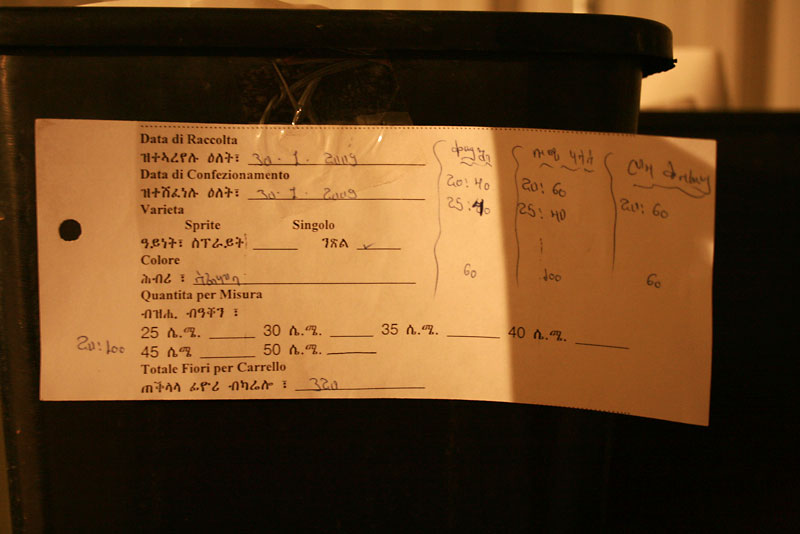 Data di Raccolta
ዝተኣረየሉ ዕለት፣ 30·1·2009
Data di Confezionamento
ዝተሸፈነሉ ዕለት፣ 30·1·2009
Varieta
Sprite Singolo
ዓይነት፣ ስፕራይት ንጽል ✓
Colore
ሕብሪ ፣
Quantita per Misura
ብዝሒ ብዓቐን ፣
25 ሴ.ሜ. 30 ሴ.ሜ. 35 ሴ.ሜ. 40 ሴ.ሜ.
20:100 45 ሴሜ 50 ሴ.ሜ.
Totale Fiori per Carrello
ጠቅላላ ፊዮሪ ብካሬሎ ፣ 320
20:40
25:40
60
20:60
25:40
100
20:60
60